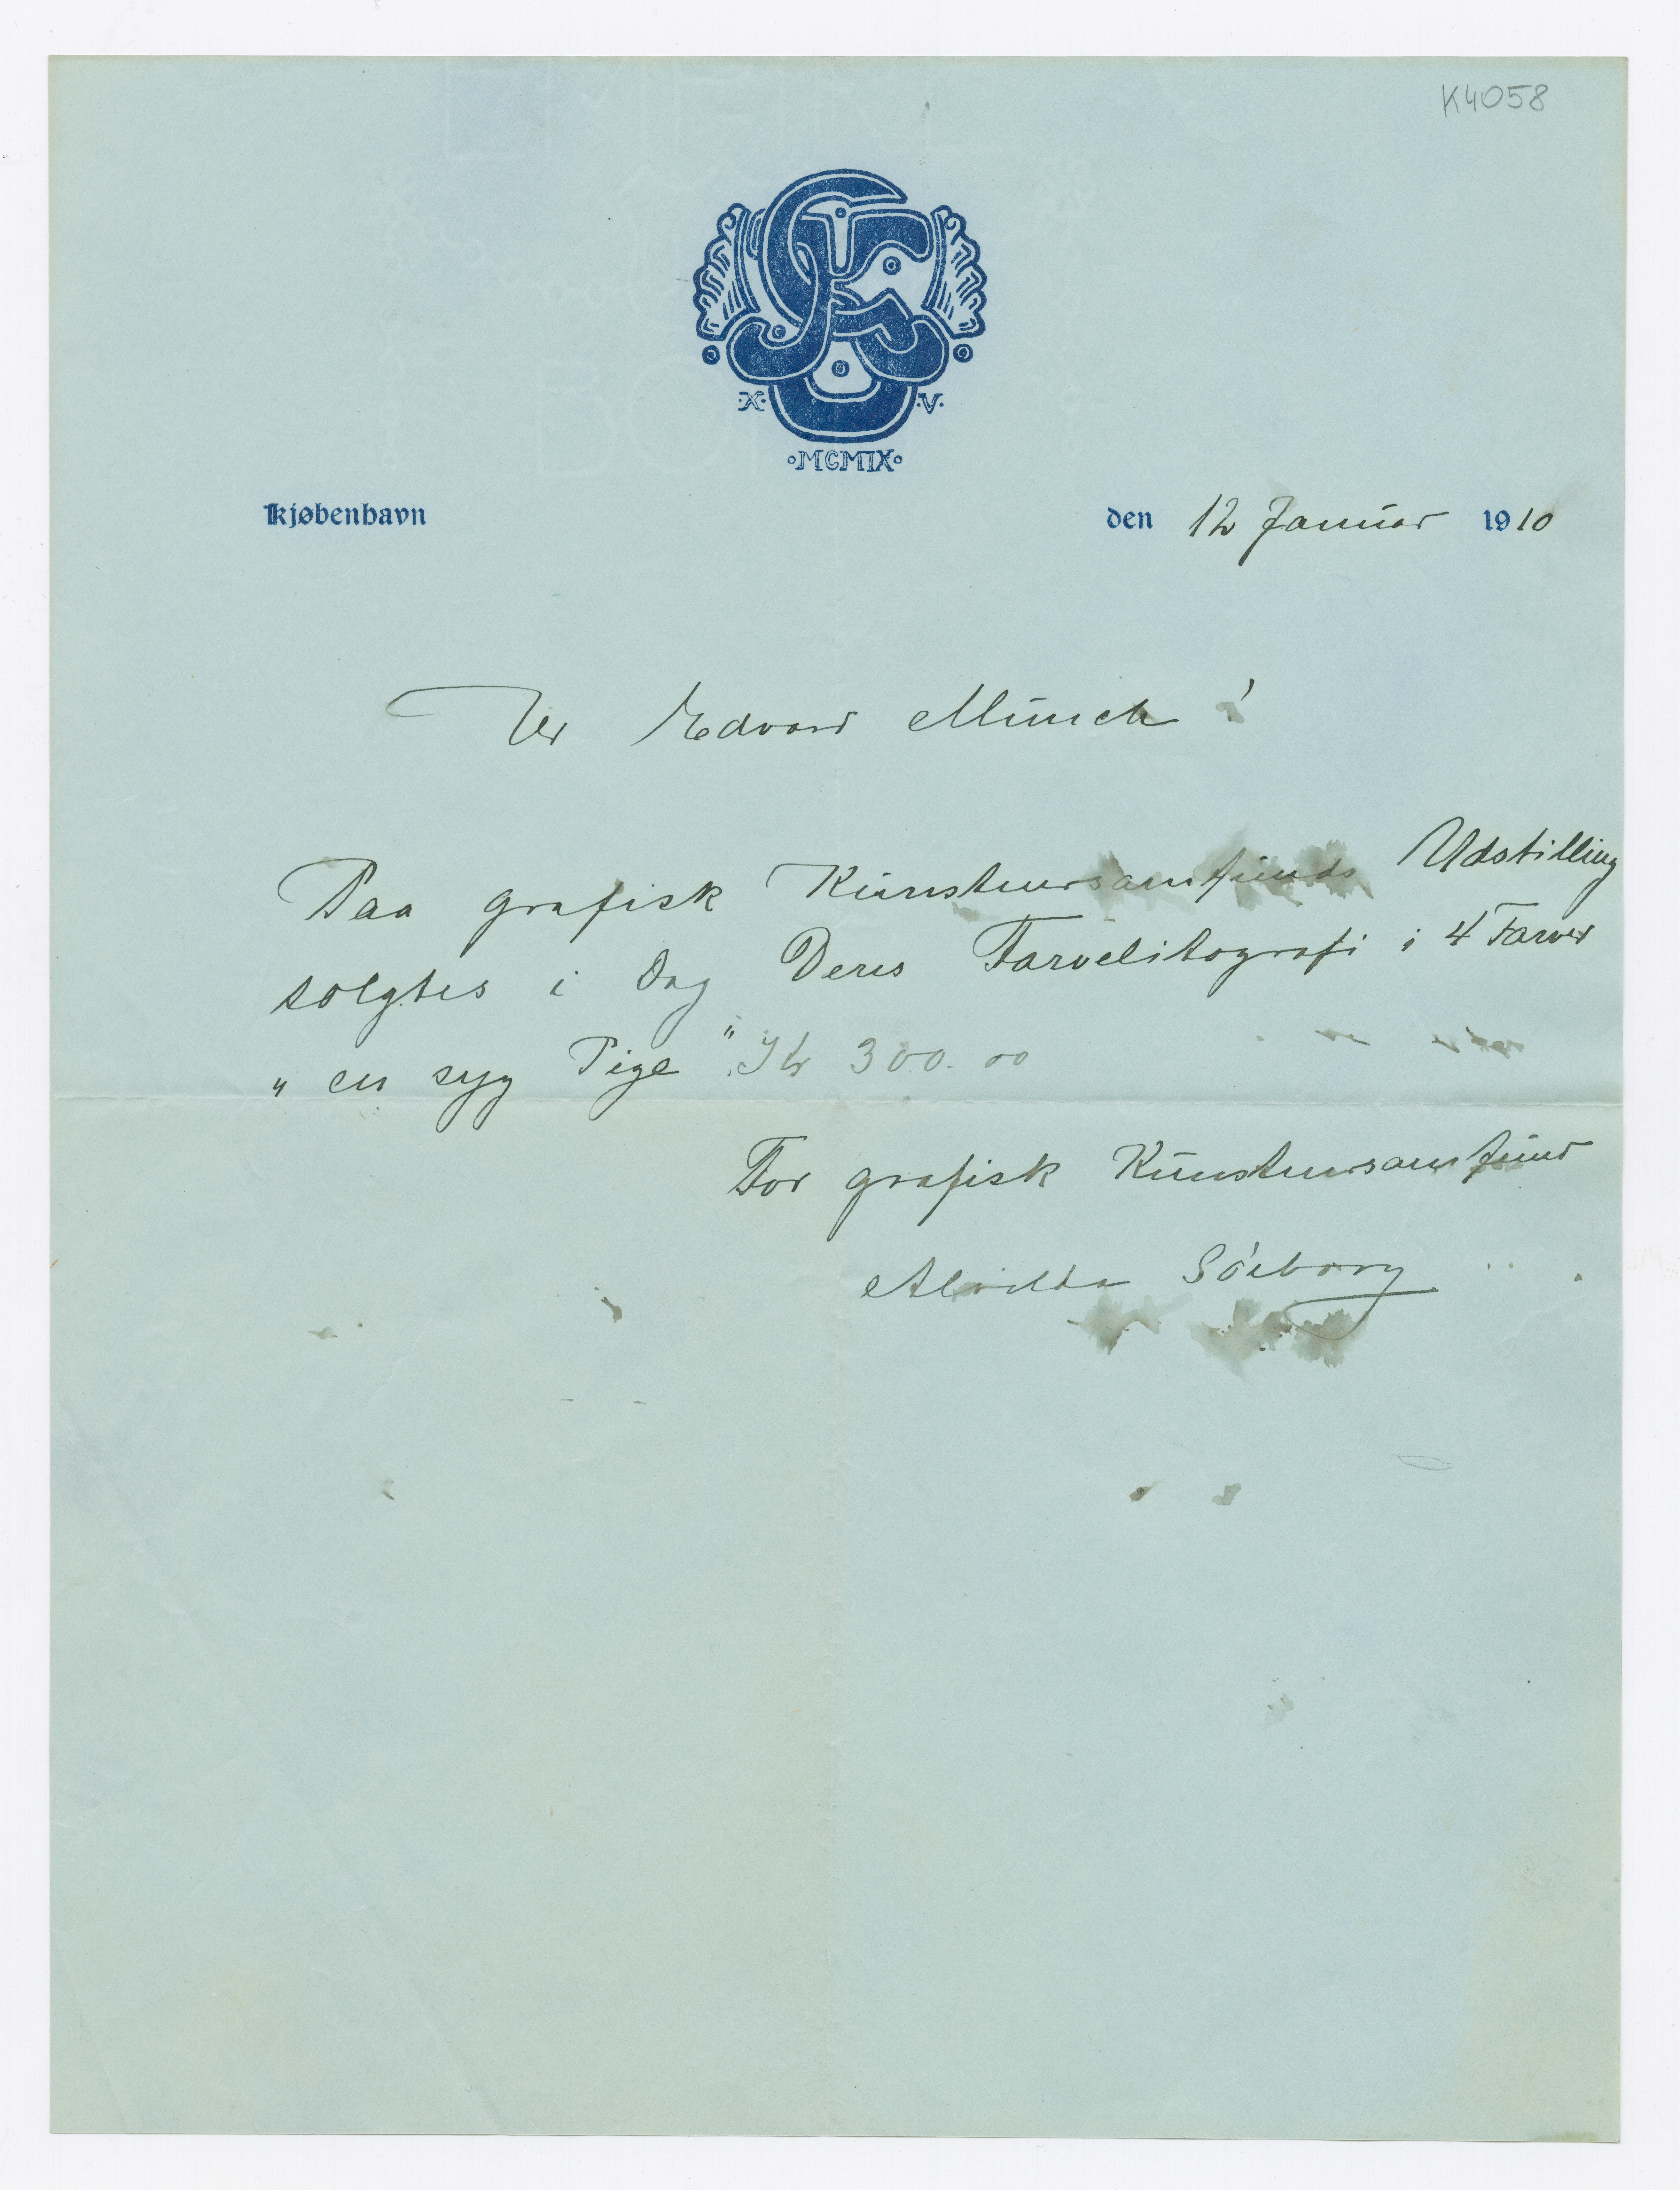 K4058
·X· ·V·
·MCMIX·
Kjøbenhavn den 12 Januar 1910
Hr Edvard Munch!
Paa grafisk Kunstnersamfunds Udstilling
solgtes i Dag Deres Farvelitografi i 4 Farver
"en syg Pige" Kr 300.00
For grafisk Kunstnersamfund